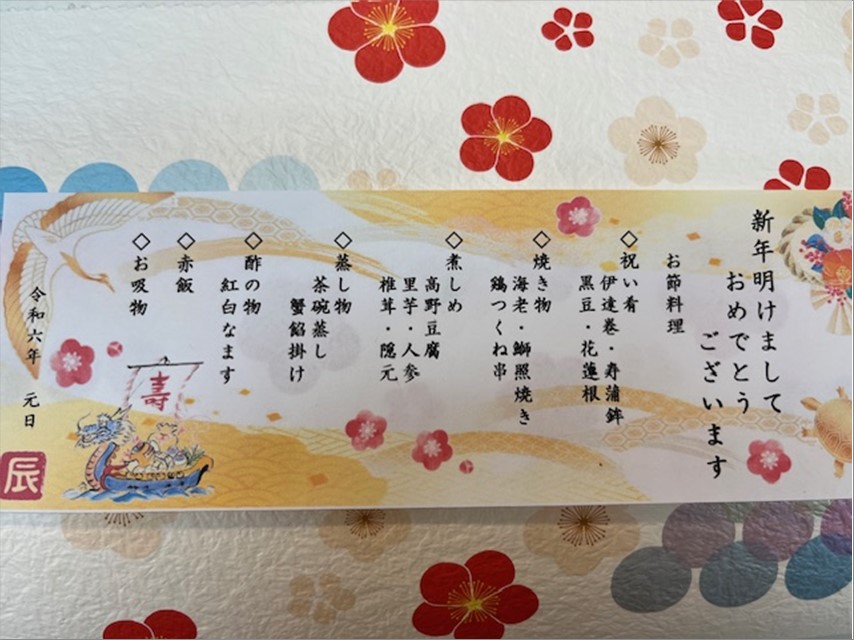 新年明けまして
おめでとう
ございます
お節料理
◇祝い肴
伊達巻・寿蒲鉾
黒豆・花蓮根
◇焼き物
海老・鰤照焼き
鶏つくね串
◇煮しめ
高野豆腐
里芋・人参
椎茸・隠元
◇蒸し物
茶碗蒸し
蟹餡掛け
◇酢の物
紅白なます
◇赤飯
◇お吸物
令和六年 元日
寿
辰